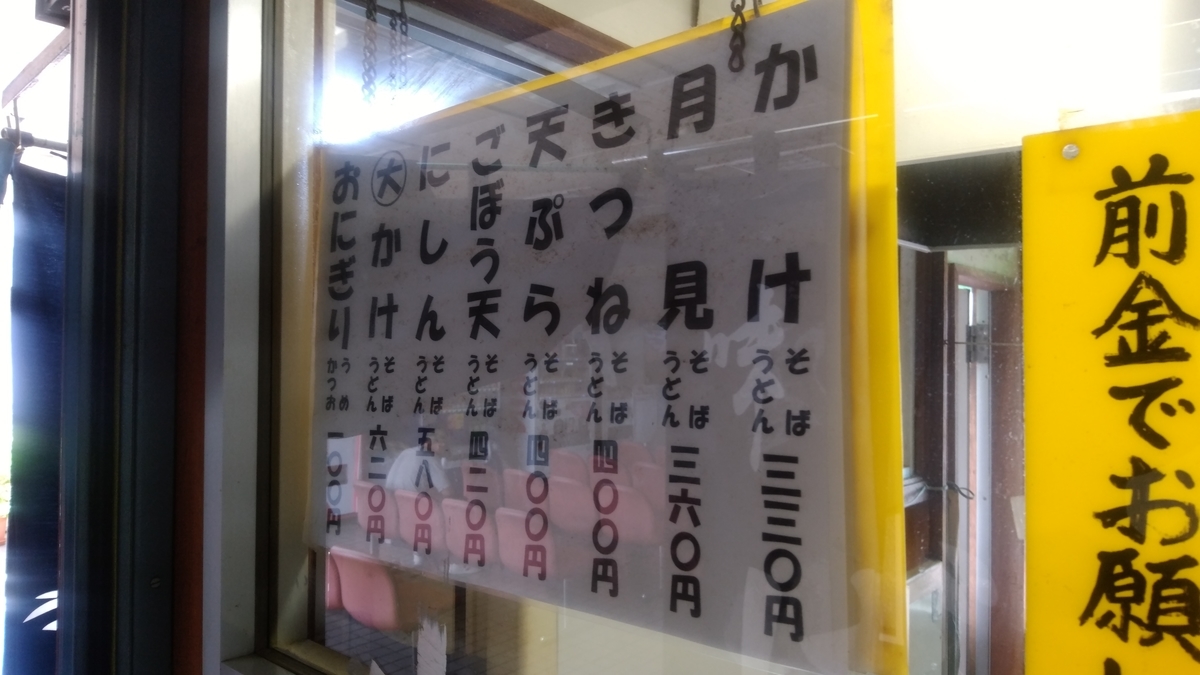 かけ そば うどん 三三〇円
月見 そば うどん 三六〇円
きつね そば うどん 四〇〇円
天ぷら そば うどん 四〇〇円
ごぼう天 そば うどん 四二〇円
にしん そば うどん 五八〇円
大かけ そば うどん 六二〇円
おにぎり うめ かつお 一〇〇円
前金でお願